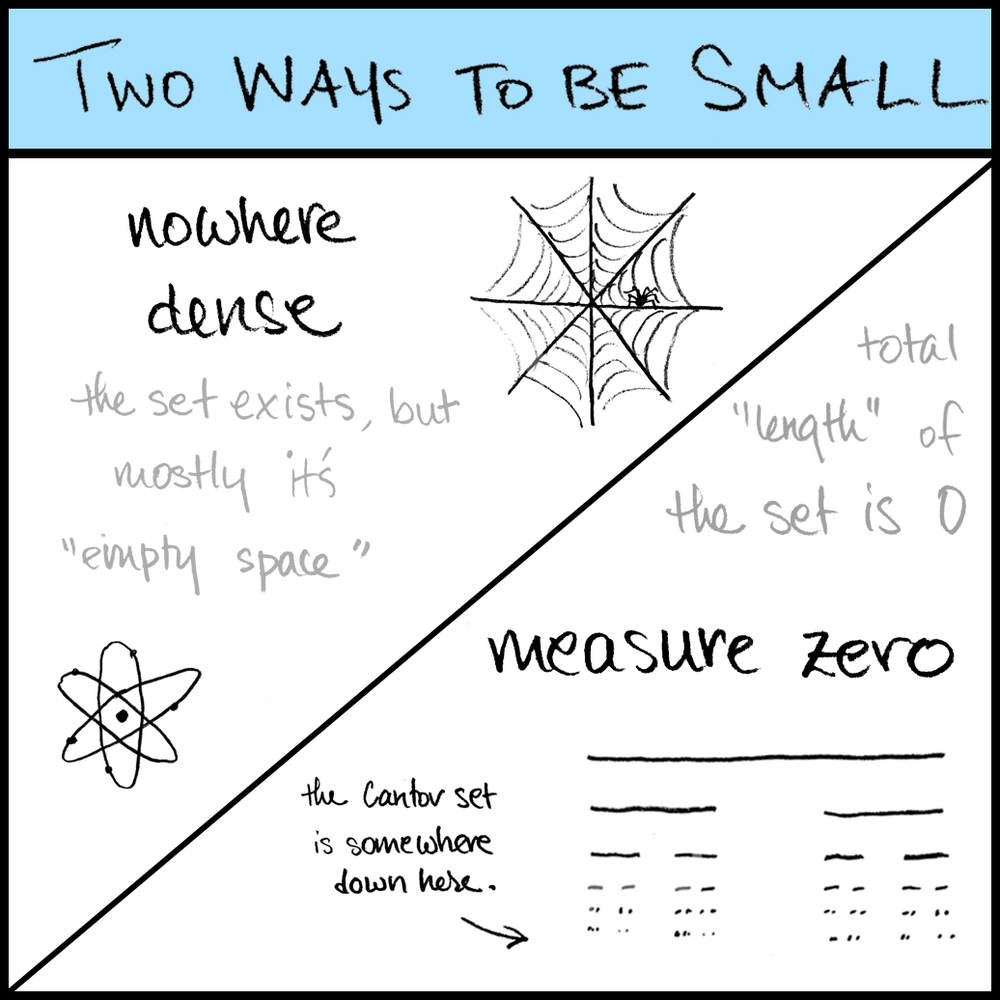 TWO WAYS TO BE SMALL
nowhere
dense
the set exists, but
mostly it's
"eimpty space"
total
"length" of
the set is 0
measure zero
the Cantor set
is somewhere
down here.